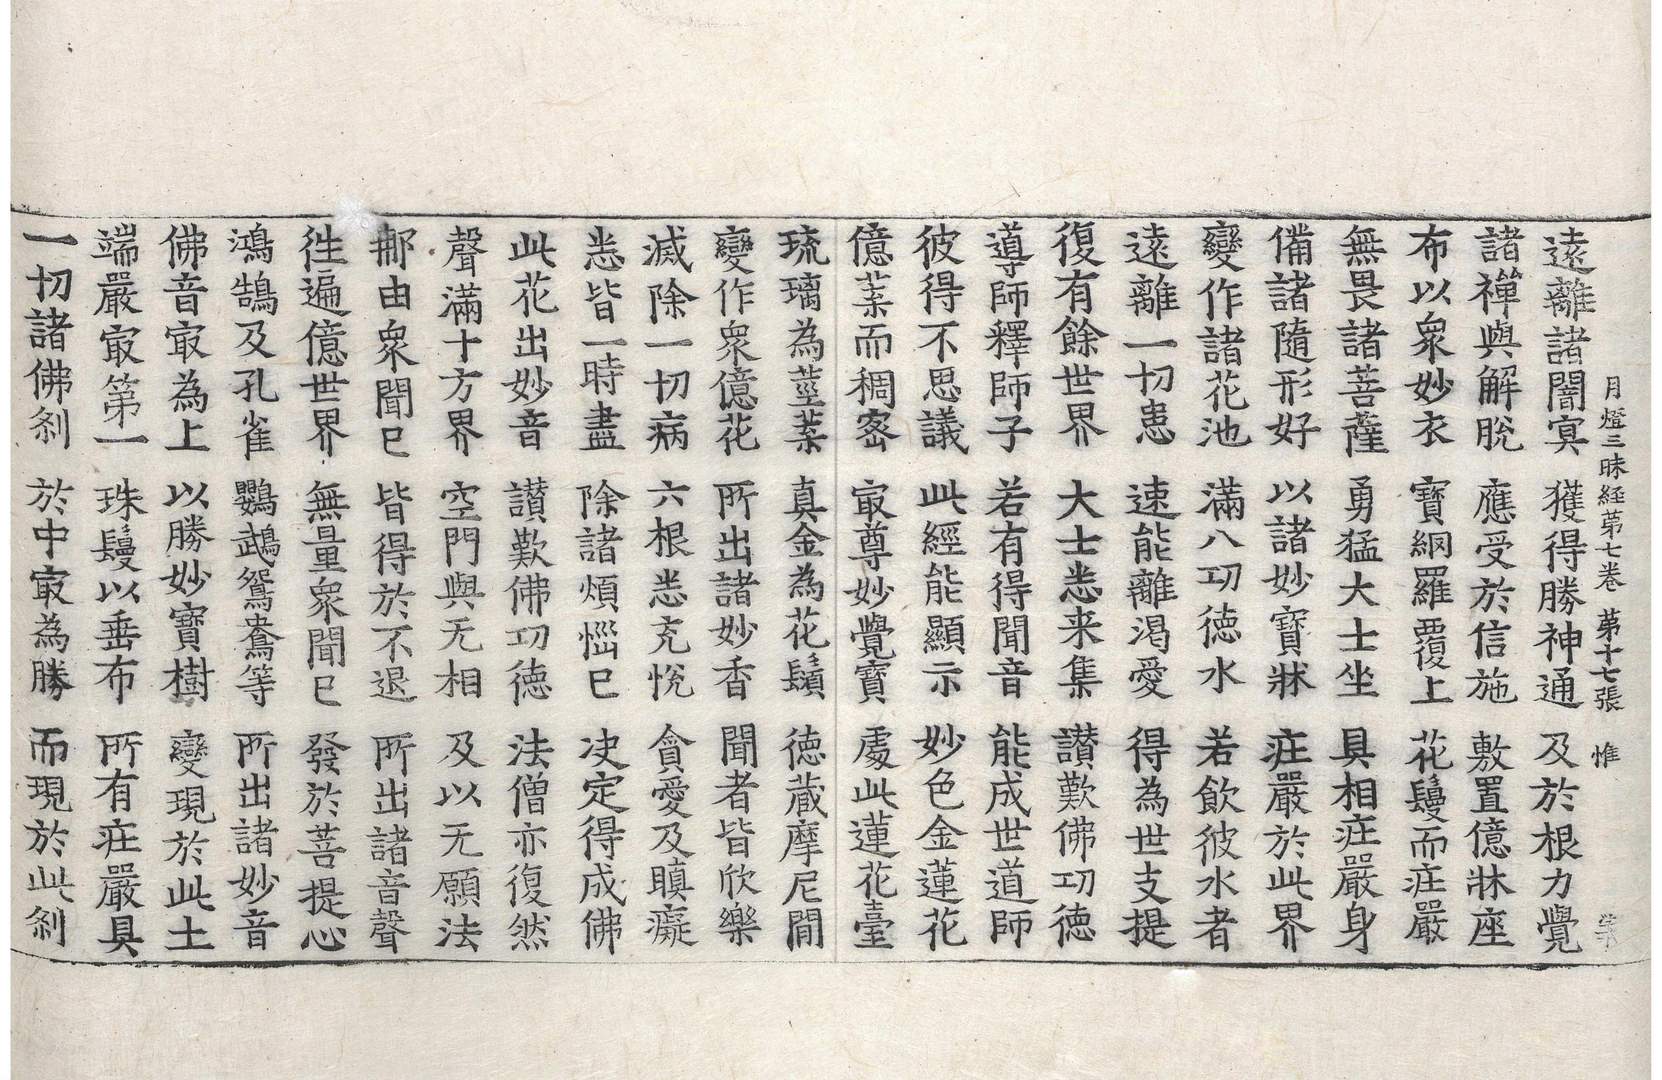 月燈三昧経第七卷 第十七張 惟
遠離諸闇冥 獲得勝神通 及於根力覺
諸禪與解脫 應受於信施 敷置億牀座
布以衆妙衣 寶網羅覆上 花鬘而庄嚴
無畏諸菩薩 勇猛大士坐 具相庄嚴身
備諸隨形好 以諸妙寶牀 庄嚴於此界
變作諸花池 滿八功德水 若飲彼水者
遠離一切患 速能離渴愛 得為世支提
復有餘世界 大士悉来集 讃歎佛功德
導師釋師子 若有得聞音 能成世道師
彼得不思議 此經能顯示 妙色金蓮花
億葉而稠密 㝡尊妙覺寶 處此蓮花臺
琉璃為莖葉 真金為花鬚 德藏摩尼間
變作衆億花 所出諸妙香 聞者皆欣樂
滅除一切病 六根悉充悅 貪愛及瞋癡
悉皆一時盡 除諸煩惱已 决定得成佛
此花出妙音 讃歎佛功德 法僧亦復然
聲滿十方界 空門與无相 及以无願法
那由衆聞已 皆得於不退 所出諸音聲
徃遍億世界 無量衆聞已 發於菩提心
鴻鵠及孔雀 鸚鵡鴛鴦等 所出諸妙音
佛音㝡為上 以勝妙寶樹 變現於此土
端嚴㝡第一 珠鬘以垂布 所有庄嚴具
一切諸佛剎 於中㝡為勝 而現於此剎